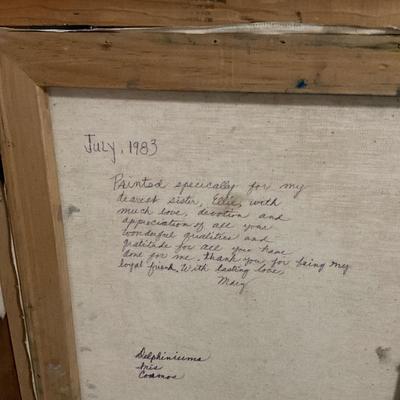 July, 1983
Painted specically for my
dearest sister, Ellie, with
much love, devotion and
appreciation of all your
wonderful qualities and
gratitude for all you have
done for me. Thank you for being my
loyal friend. With lasting love,
Mary
Delphiniums
Iris
Cosmos